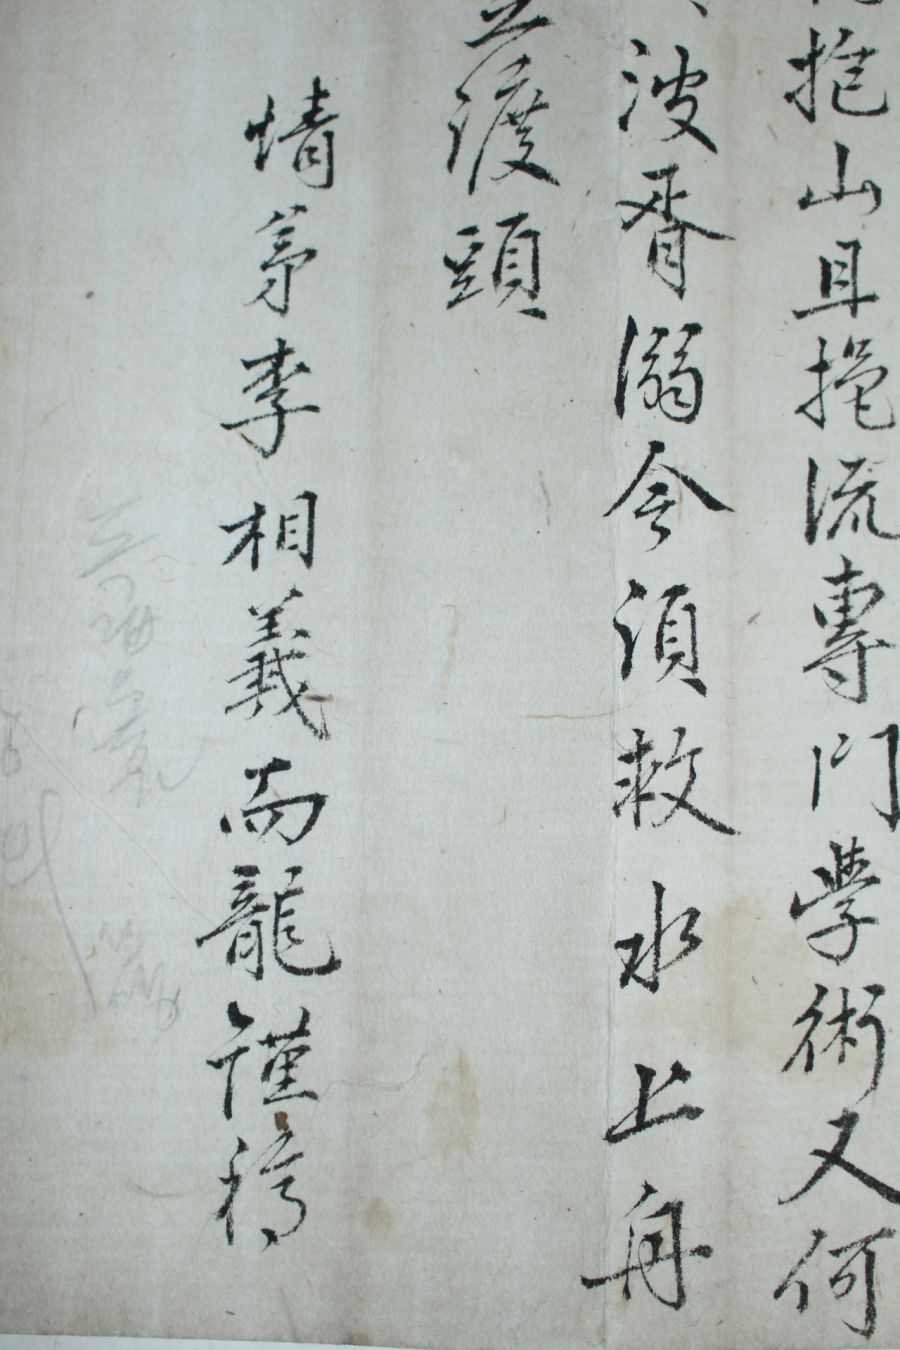 抱山且挹流專門學術又何
波胥溺今須救水上舟
立渡頭
情弟李相羲雨龍謹稿